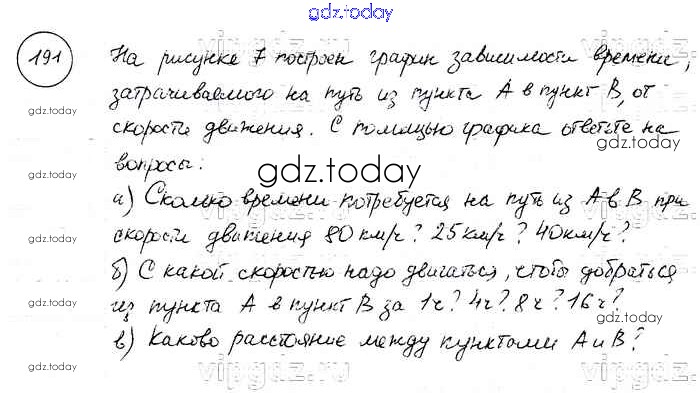 gdz.today
191 На рисунке 7 построен график зависимости времени,
затрачиваемого на путь из пункта А в пункт В, от
скорости движения. С помощью графика ответьте на
вопросы:
а) Сколько времени потребуется на путь из А в В при
скорости движения 80 км/ч? 25 км/ч? 40 км/ч?
б) С какой скоростью надо двигаться, чтобы добраться
из пункта А в пункт В за 1ч? 4ч? 8ч? 16ч?
в) Каково расстояние между пунктами А и В?
gdz.today
gdz.today
gdz.today
gdz.today
gdz.today
gdz.today
gdz.today
gdz.today
gdz.today
vipgdz.ru
vipgdz.ru
vipgdz.ru